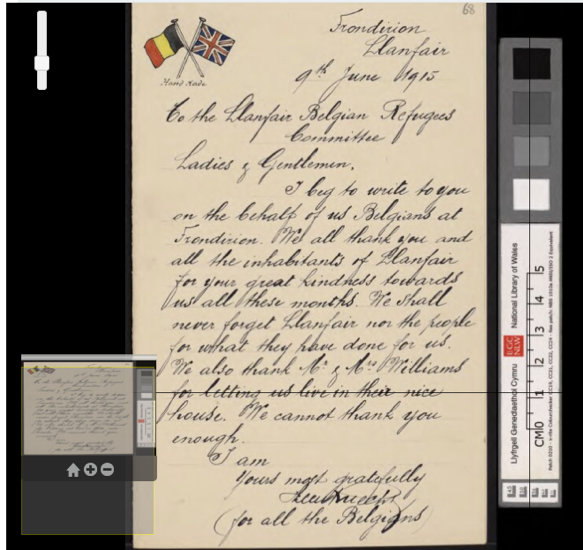 68
Frondirion
Llanfair
9th June 1915
Hand Made.
To the Llanfair Belgian Refugees
Committee
Ladies & Gentlemen.
I beg to write to you
on the behalf of us Belgians at
Frondirion. We all thank you and
all the inhabitants of Llanfair
for your great kindness towards
us all these months. We shall
never forget Llanfair nor the people
for what they have done for us.
We also thank Mr & Mrs Williams
for letting us live in their nice
house. We cannot thank you
enough.
I am
Yours most gratefully
(for all the Belgians)
Llyfrgell Genedlaethol Cymru
LLGC
NLW
National Library of Wales
CM 0 1 2 3 4 5